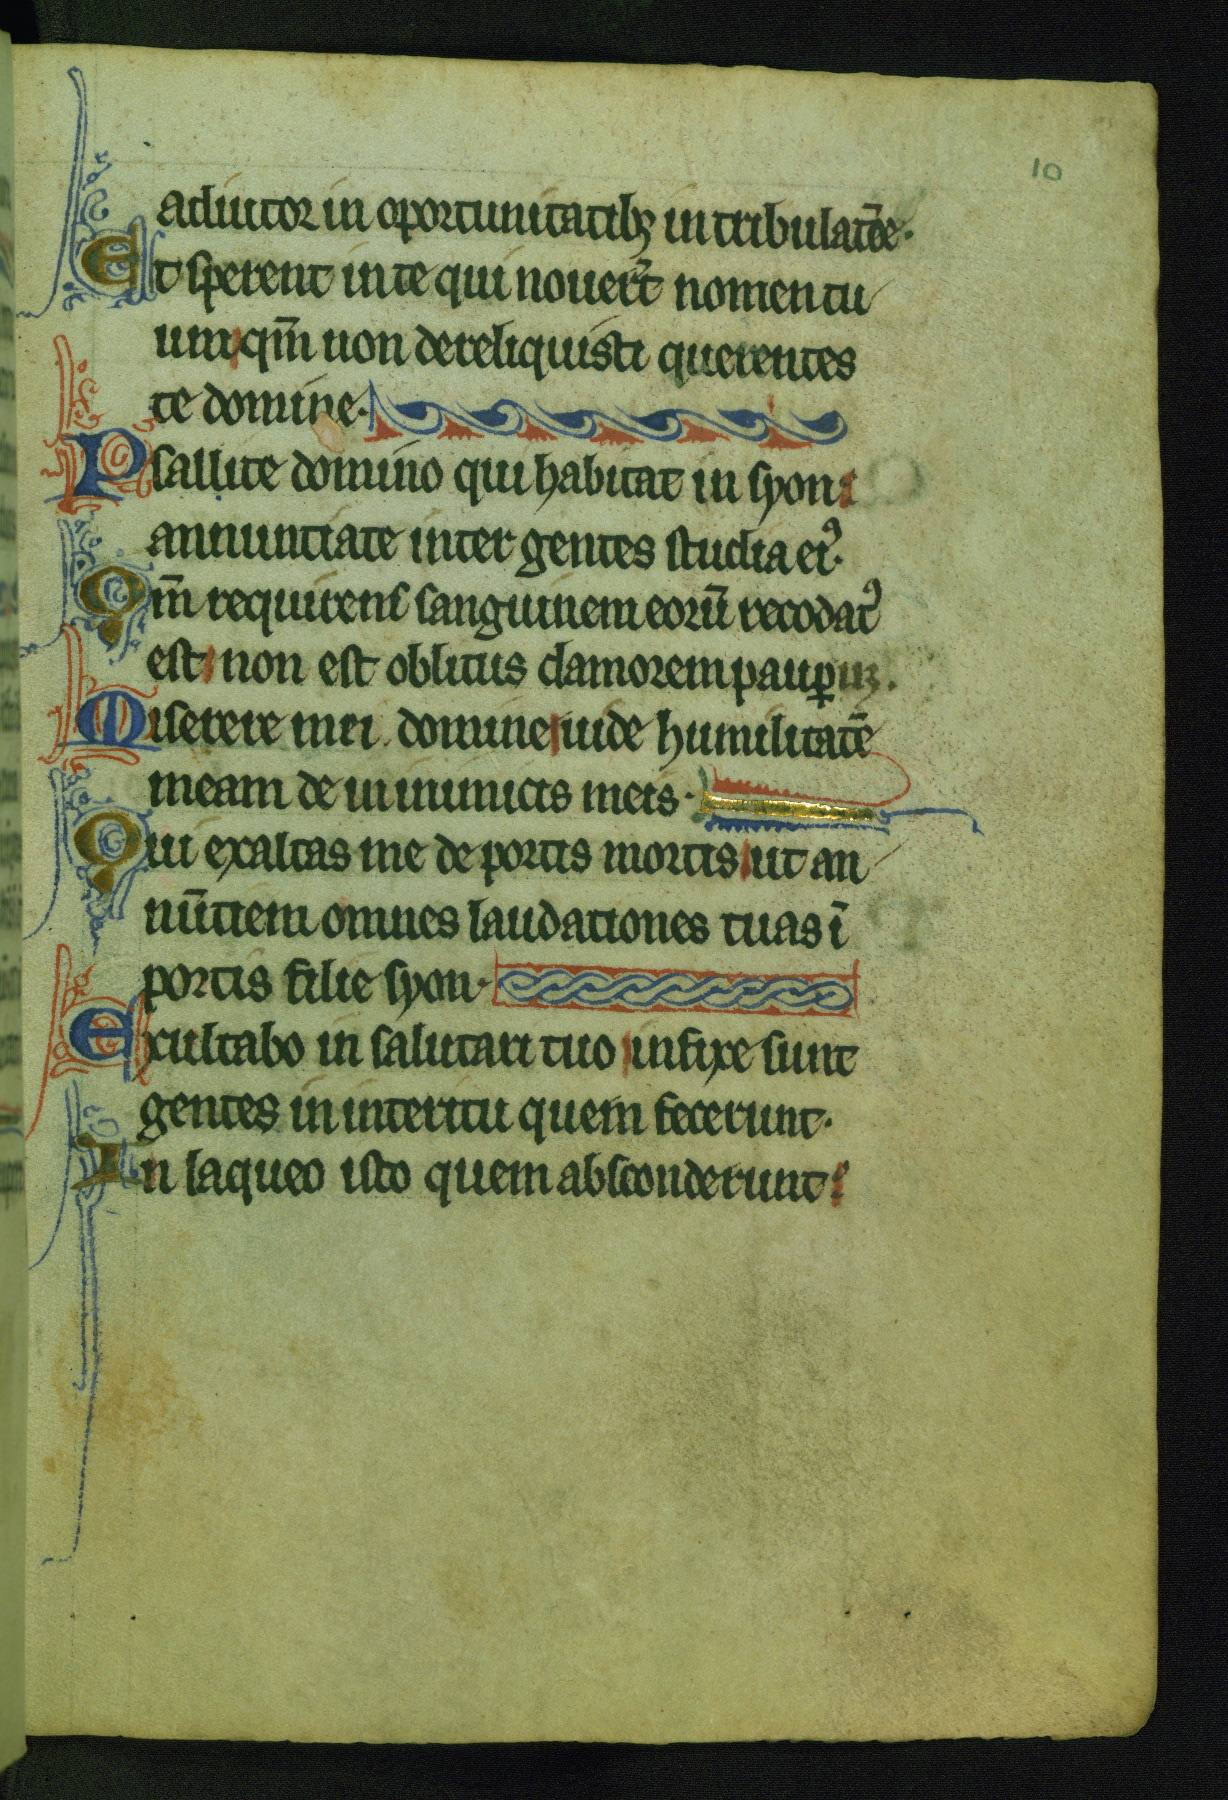 10
adiutor in oportunitatibꝫ in tribulatōe·
Et sperent in te qui nouer̄t nomen tu
um qm̄ non dereliquisti querentes
te domine·
Psallite domino qui habitat in syon
annunciate inter gentes studia eiꝰ·
Qm̄ requirens sanguinem eorū recodatꝰ
est non est oblitus clamorem pauꝑuꝫ.
Miserere mei domine uide humilitatē
meam de in inimicis meis·
Qui exaltas me de portis mortis ut an
nūtiem omnes laudationes tuas ī
portis filie syon·
Exultabo in salutari tuo infixe sunt
gentes in interitu quem fecerunt·
In laqueo isto quem absconderunt